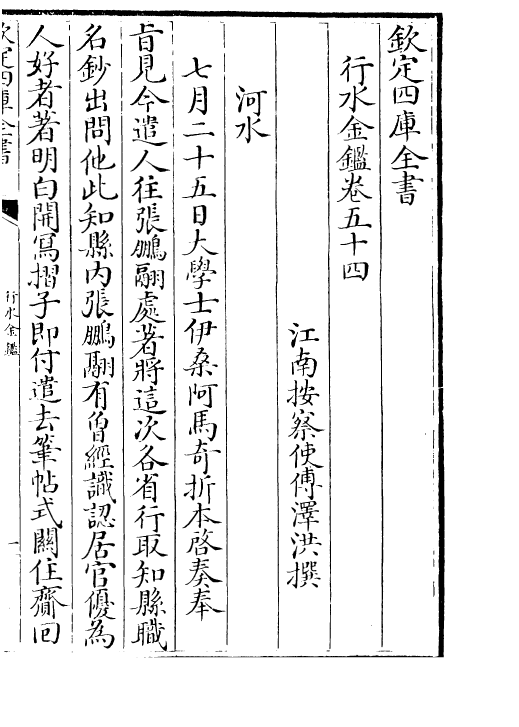 欽定四庫全書
行水金鑑卷五十四
江南按察使傅澤洪撰
河水
七月二十五日大學士伊桑阿馬奇折本啓奏奉
旨見今遣人往張鵬翮處著將這次各省行取知縣職
名鈔出問他此知縣內張鵬翮有曾經識認居官優為
人好者著明白開寫摺子即付遣去筆帖式關住齎回
欽定四庫全書
行水金鑑
一